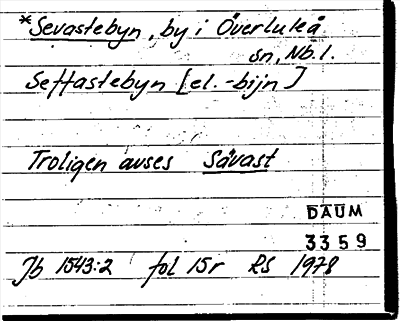 *Sevastebyn, by i Överluleå
sn, Nb.l.
Seffastebyn [el. -bijn]
Troligen avses Såvast
DAUM
3359
Jb 1543:2 fol 15r RS 1978